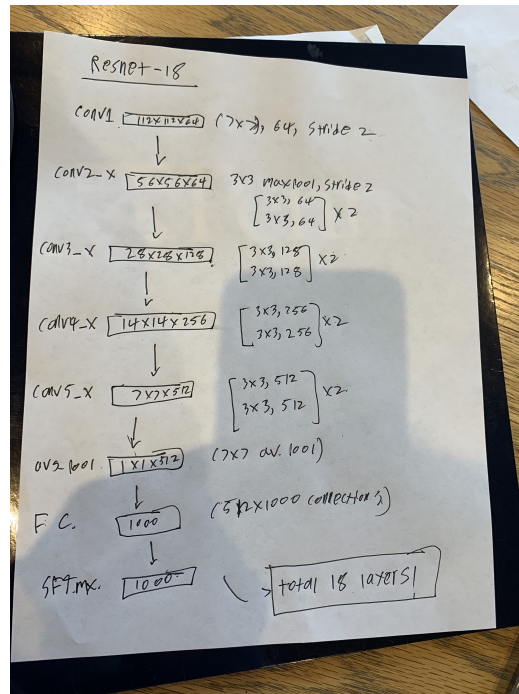 Resnet-18
conv1 112x112x64 (7x7), 64, stride 2
conv2_x 56x56x64 3x3 maxpool, stride 2
[3x3, 64
3x3, 64] x2
conv3_x 28x28x128 [3x3, 128
3x3, 128] x2
conv4_x 14x14x256 [3x3, 256
3x3, 256] x2
conv5_x 7x7x512 [3x3, 512
3x3, 512] x2
avg pool 1x1x512 (7x7 av. pool)
F.C. 1000 (512x1000 connections)
SFT.mx. 1000 total 18 layers!